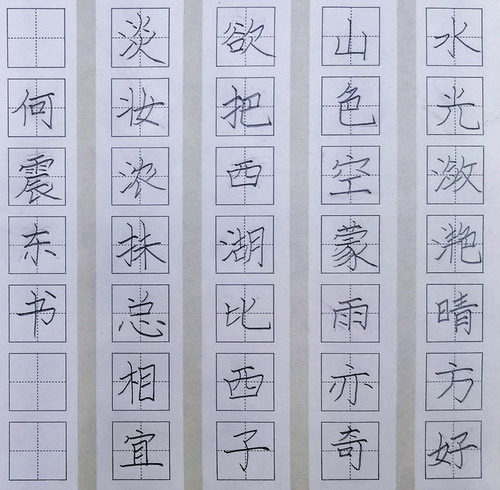 水光潋滟晴方好
山色空蒙雨亦奇
欲把西湖比西子
淡妆浓抹总相宜
何震东书